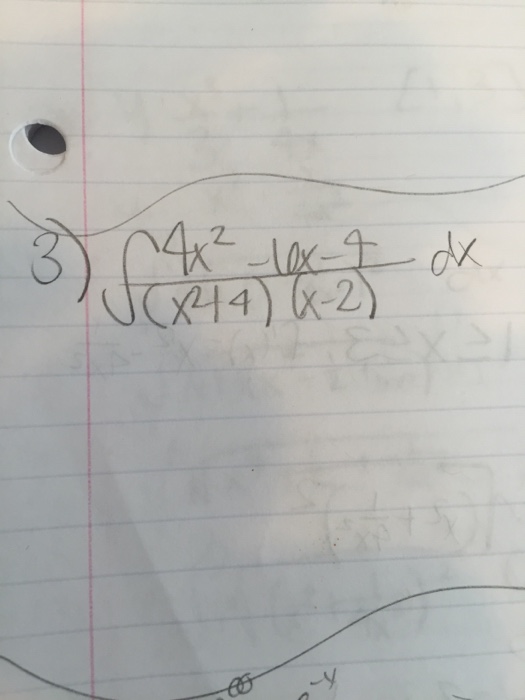 3) ∫ 4x² - 6x - 4 / (x² + 4) (x - 2) dx